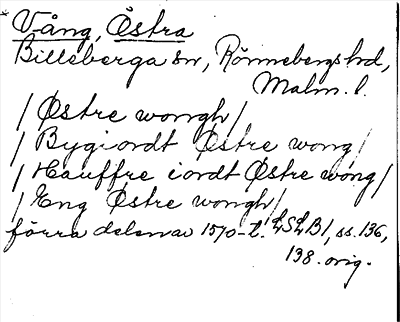 * Vång, Östra
Billeberga sn, Rönnebergs hd,
Malm. l.
/ Østre wongh /
/ Bygiordt Østre wong /
/ Hauffre iordt Østre wong /
/ Eng Østre wongh /
förra delen av 1570-t. LSLB1, ss. 136,
138. orig.